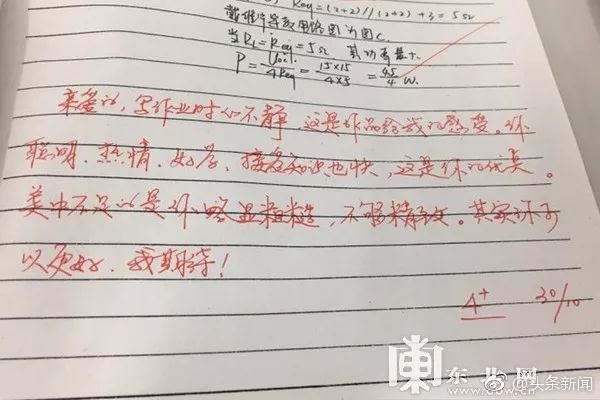 Req=(2+2)//(2+2)+3=5Ω
戴维宁等效电路图为图c.
当RL=Req=5Ω 其功率最大.
P=Uoc²/4Req=15×15/4×5=45/4 W.
亲爱的,写作业时心不静,这是作品给我的感受。你
聪明、热情、好学、接受知识也快,这是你的优点。
美中不足的是你略显粗糙,不够精致。其实你可
以更好,我期待!
4+ 30/10
东北网
www.dbw.cn
@头条新闻